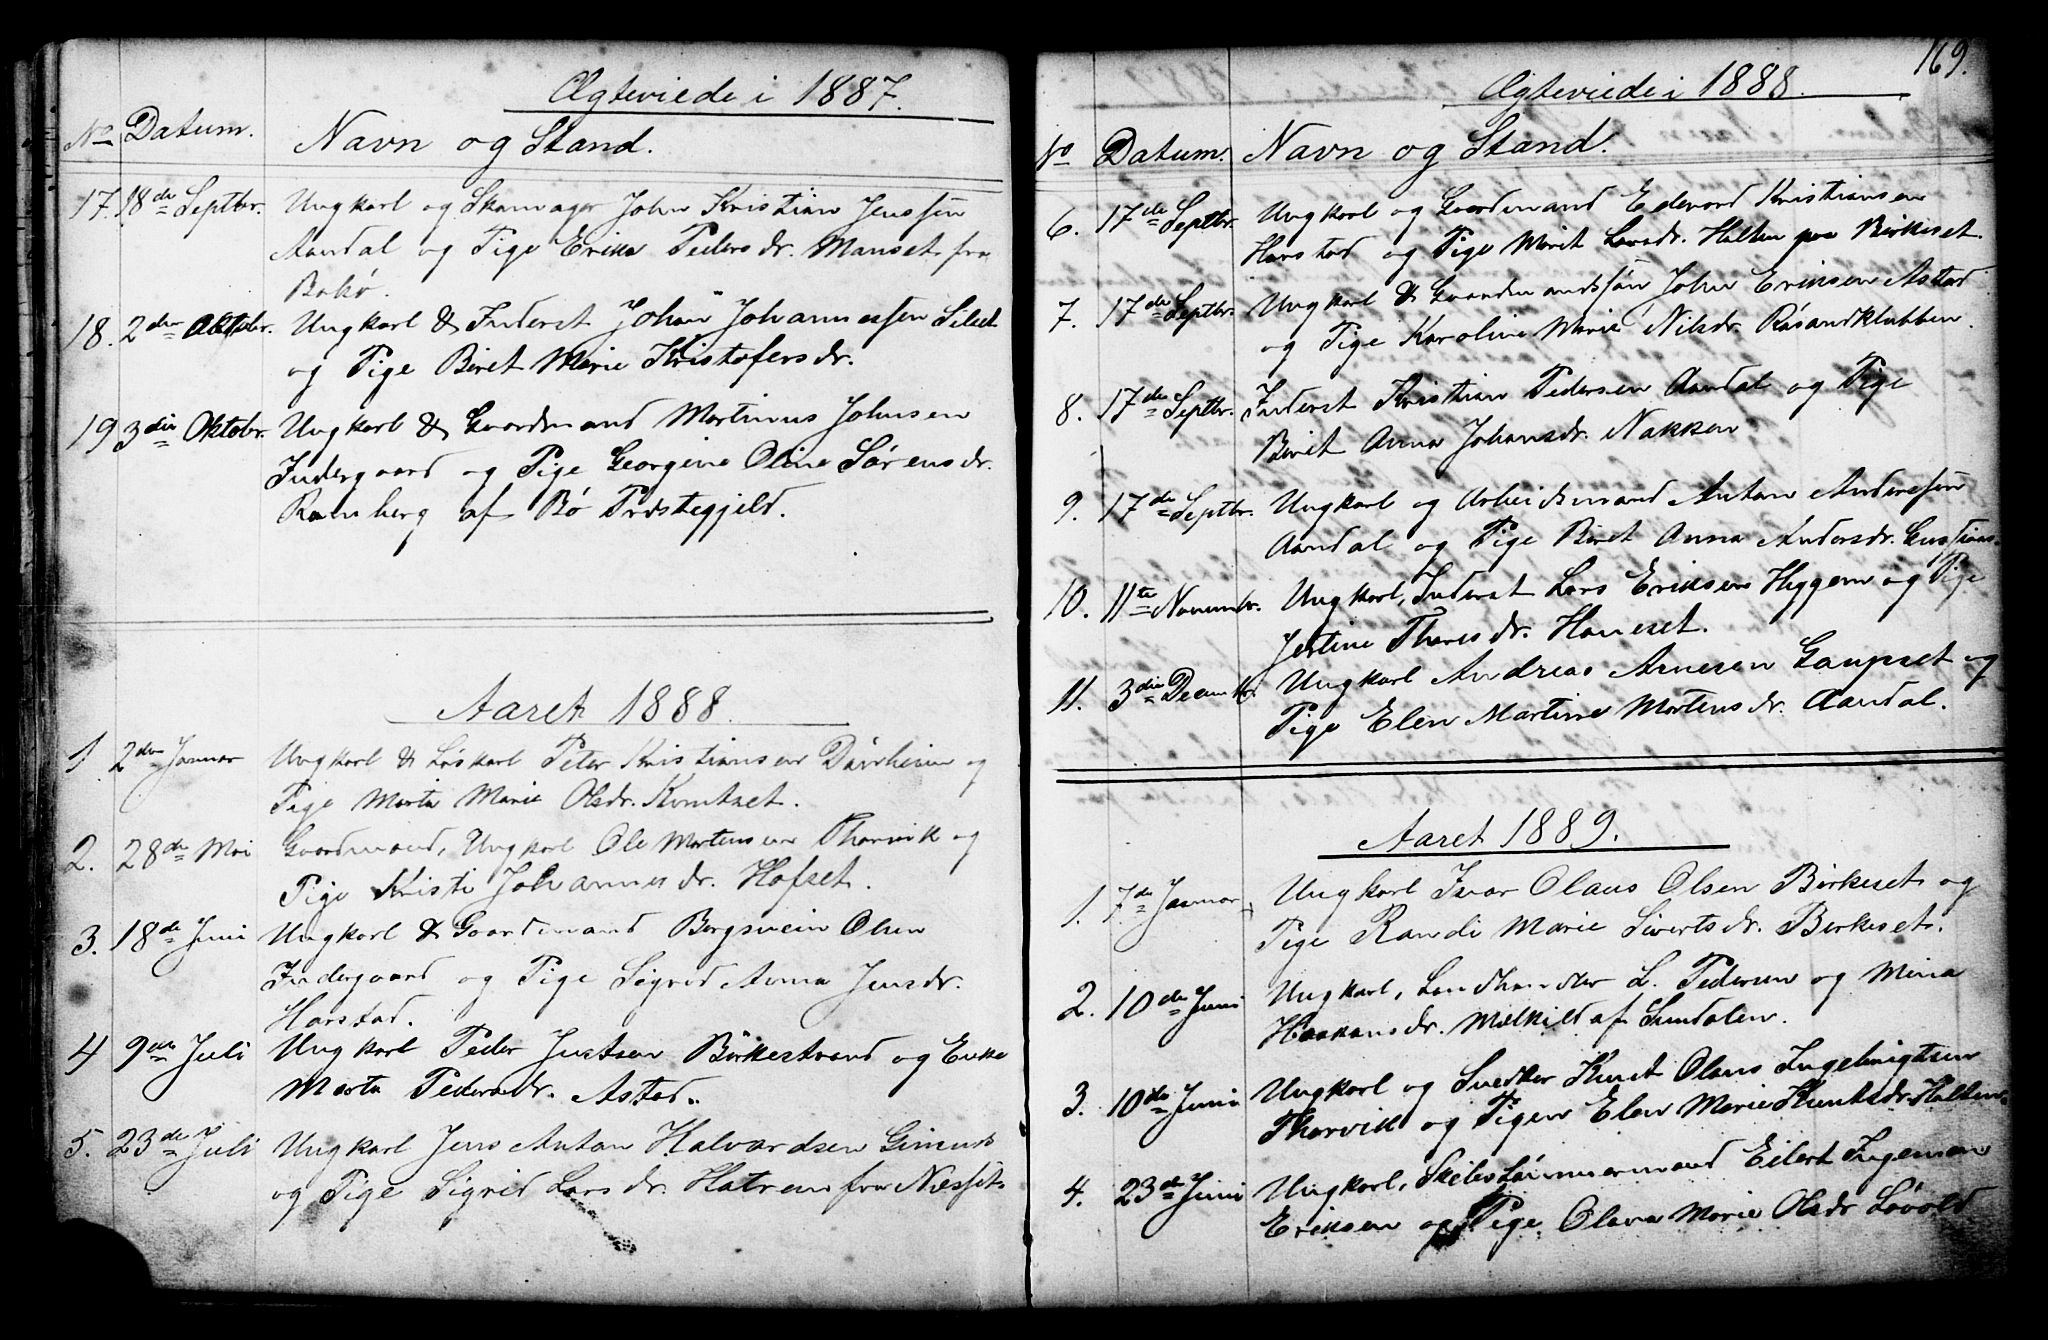 Ægteviede i 1887.
No Datum. Navn og Stand.
17. 18de Septbr. Ungkarl og Skomager John Kristian Jenssen
Aandal og Pige Erika Pedersdr. Manset fra
Bolsø.
18. 2den Oktobr. Ungkarl & Inderst Johan Johannessen Silset
og Pige Beret Marie Kristofersdr.
19 3die Oktobr. Ungkarl & Gaardmand Martinus Johnsen
Indergaard og Pige Georgine Oline Sørensdr.
Ramberg af Bø Præstegjeld.
Aaret 1888.
1. 2den Januar Ungkarl & Løskarl Peter Kristiansen Dürrheim og
Pige Marta Marie Olsdr. Kvutset.
2. 28de Mai Gaardmand, Ungkarl Ole Mortensen Thorvik og
Pige Kristi Johannesdr. Hofset.
3. 18de Juni Ungkarl & Gaardmand Bergsvein Olsen
Indergaard og Pige Sigrid Anna Jensdr.
Harstad.
4 9de Juli Ungkarl Peder Justsen Birkestrand og Enke
Marta Pedersdr. Astad.
5. 23de Juli Ungkarl Jens Antan Halvardsen Gimnes
og Pige Sigrid Larsdr. Hatrem fra Næsset.
169.
Ægteviede i 1888.
No Datum. Navn og Stand.
6. 17de Septbr. Ungkarl og Gaardmand Edevard Kristiansen
Harstad og Pige Marit Larsdr. Halten paa Birkeset.
7. 17de Septbr. Ungkarl & Gaardmandssøn John Eriksen Astad
og Pige Karoline Marie Nilsdr. Røsandklubben.
8. 17de Septbr. Inderst Kristian Pedersen Aandal og Pige
Berit Anna Johansdr. Nakken
9. 17de Septbr. Ungkarl og Arbeidsmand Antan Anderssen
Aandal og Pige Beret Anna Andersdr.
10. 11te Novembr. Ungkarl, Inderst Lars Eriksen Heggem og Pige
Jertine Tharesdr. Haneset.
11. 3die Decembr. Ungkarl Andreas Arnesen Gaupset og
Pige Elen Martine Mortensdr. Aandal.
Aaret 1889.
1. 7de Januar Ungkarl Ivar Olaus Olsen Birkeset og
Pige Randi Marie Sivertsdr. Birkeset.
2. 10de Juni Ungkarl, Landhandler L. Pedersen og Mina
Haakansdr. Mælkild af Sundalen.
3. 10de Juni Ungkarl og Snedker Knut Olaus Ingebrigtsen
Thorvik og Pigen Elen Marie Knutsdr. Halten.
4. 23de Juni Ungkarl, Skibstømmermand Eilert Ingeman
Eriksen og Pige Olava Marie Olsdr Løvold